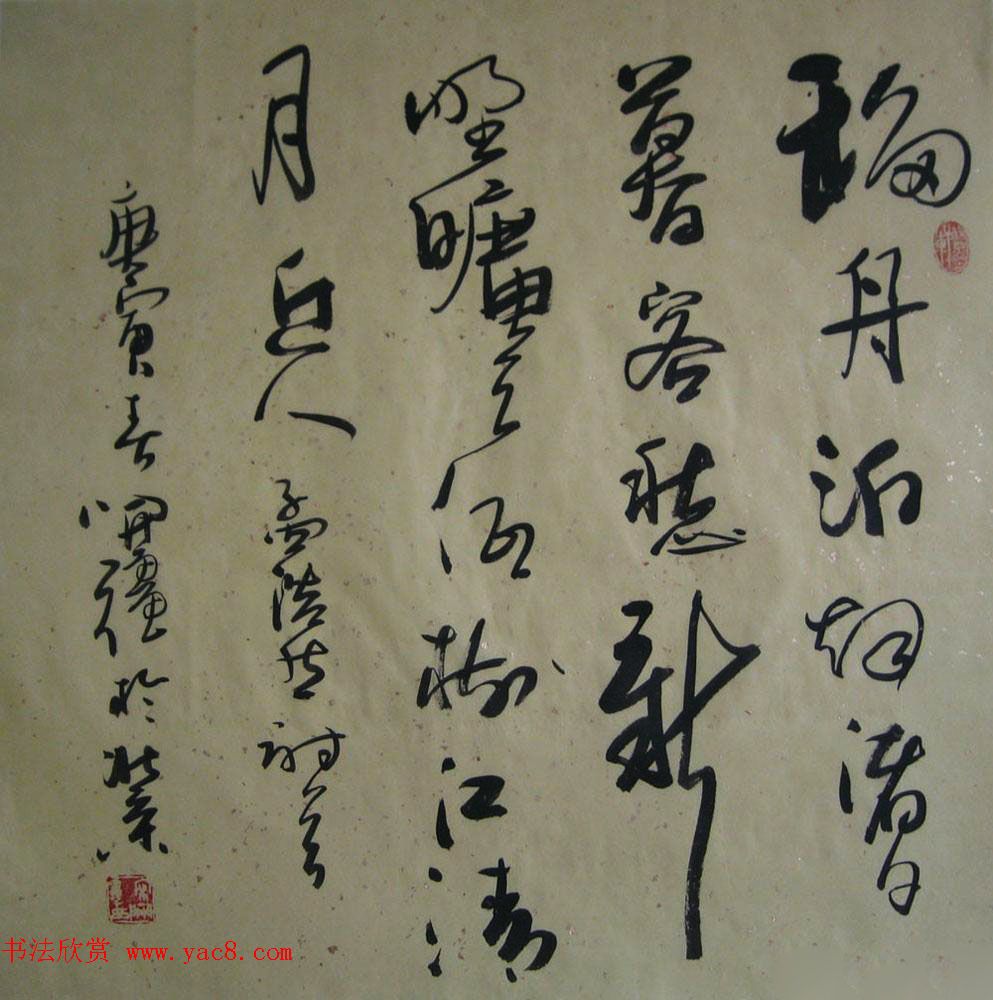 移舟泊烟渚日
暮客愁新
野曠天低樹江清
月近人 孟浩然詩
庚寅春於
书法欣赏 www.yac8.com